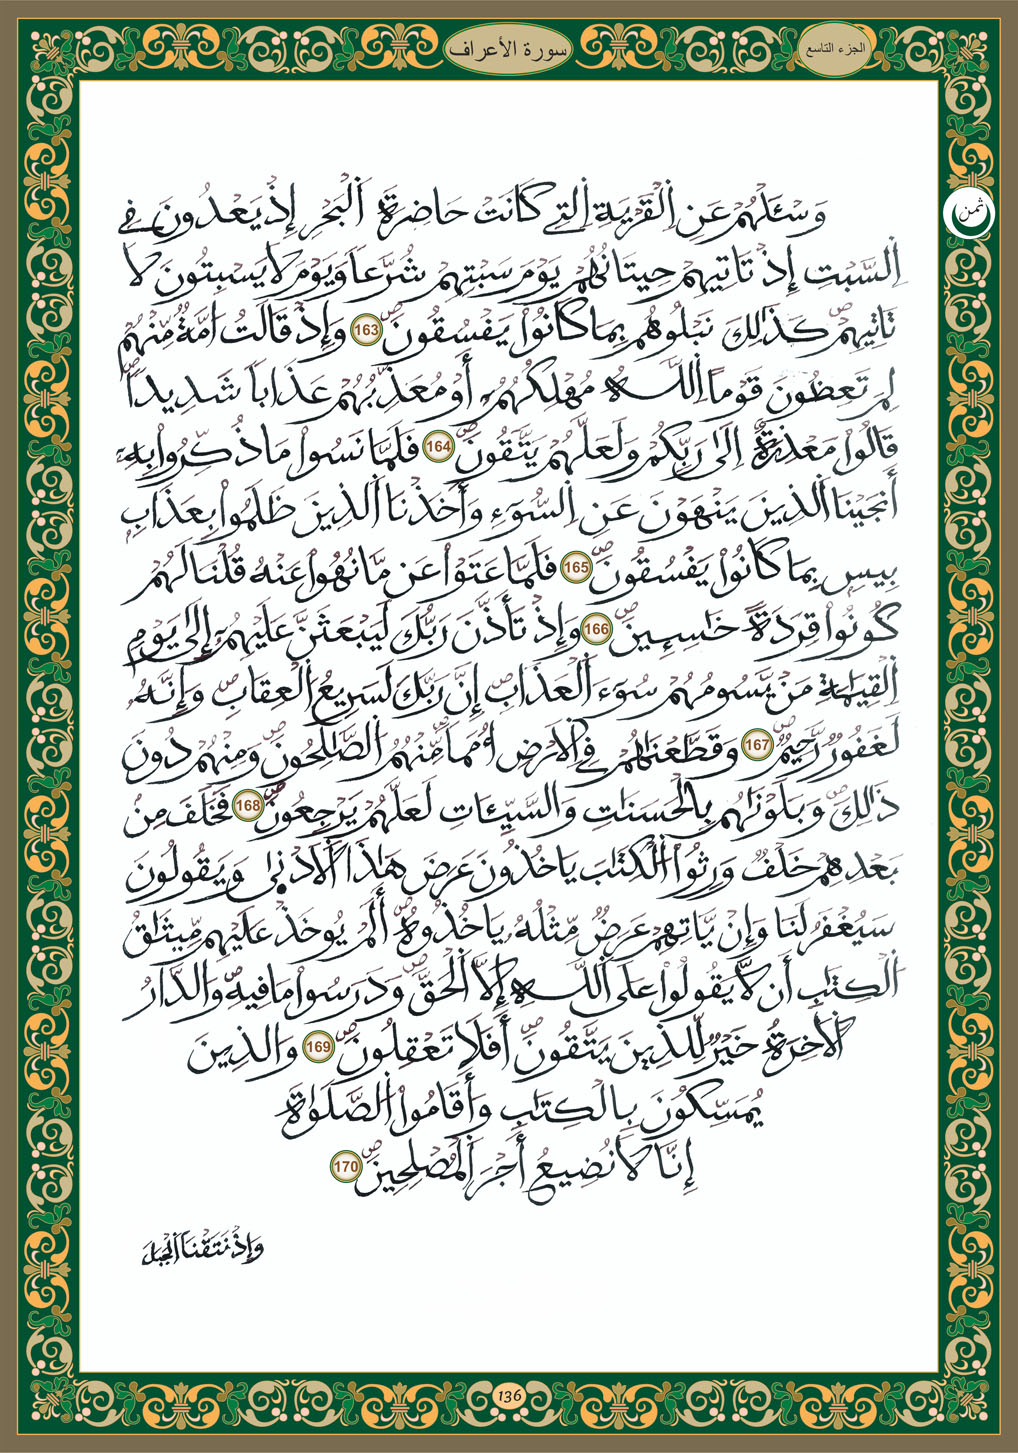 الجزء التاسع
سورة الأعراف
ثمن
وَسْـَٔلْهُمْ عَنِ اِلْقَرْيَةِ اِلتِے كَانَتْ حَاضِرَةَ اَلْبَحْرِ إِذْ يَعْدُونَ فِے
اِلسَّبْتِ إِذْ تَاتِيهِمْ حِيتَانُهُمْ يَوْمَ سَبْتِهِمْ شُرَّعاً وَيَوْمَ لَا يَسْبِتُونَ لَا
تَاتِيهِمْ صؐ كَذَٰلِكَ نَبْلُوهُم بِمَا كَانُواْ يَفْسُقُونَ صؐ 163 وَإِذْ قَالَتُ امَّةٌ مِّنْهُمْ
لِمَ تَعِظُونَ قَوْماً اِللَّهُ مُهْلِكُهُمُۥٓ أَوْ مُعَذِّبُهُمْ عَذَاباً شَدِيداً صؐ
قَالُواْ مَعْذِرَةٌ اِلَىٰ رَبِّكُمْ وَلَعَلَّهُمْ يَتَّقُونَ صؐ 164 فَلَمَّا نَسُواْ مَا ذُكِّرُواْ بِهِۦٓ
أَنجَيْنَا اَلذِينَ يَنْهَوْنَ عَنِ اِلسُّوٓءِ وَأَخَذْنَا اَلذِينَ ظَلَمُواْ بِعَذَابٍ
بِيسٍ بِمَا كَانُواْ يَفْسُقُونَ صؐ 165 فَلَمَّا عَتَوْاْ عَن مَّا نُهُواْ عَنْهُ قُلْنَا لَهُمْ
كُونُواْ قِرَدَةً خَٰسِـِٕينَ صؐ 166 وَإِذْ تَأَذَّنَ رَبُّكَ لَيَبْعَثَنَّ عَلَيْهِمُۥٓ إِلَىٰ يَوْمِ
اِلْقِيَٰمَةِ مَنْ يَّسُومُهُمْ سُوٓءَ اَلْعَذَابِ صؐ إِنَّ رَبَّكَ لَسَرِيعُ اُلْعِقَابِ صؐ وَإِنَّهُۥ
لَغَفُورٌ رَّحِيمٌ صؐ 167 وَقَطَّعْنَٰهُمْ فِے اِلَارْضِ أُمَماً صؐ مِّنْهُمُ اُلصَّٰلِحُونَ صؐ وَمِنْهُمْ دُونَ
ذَٰلِكَ صؐ وَبَلَوْنَٰهُم بِالْحَسَنَٰتِ وَالسَّيِّـَٔاتِ لَعَلَّهُمْ يَرْجِعُونَ صؐ 168 فَخَلَفَ مِنۢ
بَعْدِهِمْ خَلْفٌ وَرِثُواْ اُلْكِتَٰبَ يَاخُذُونَ عَرَضَ هَٰذَا اَلَادْنَىٰ وَيَقُولُونَ
سَيُغْفَرُ لَنَا وَإِنْ يَّاتِهِمْ عَرَضٌ مِّثْلُهُۥ يَاخُذُوهُ صؐ أَلَمْ يُوخَذْ عَلَيْهِم مِّيثَٰقُ
اُلْكِتَٰبِ أَن لَّا يَقُولُواْ عَلَى اَللَّهِ إِلَّا اَلْحَقَّ صؐ وَدَرَسُواْ مَا فِيهِ صؐ وَالدَّارُ
اُلَاخِرَةُ خَيْرٌ لِّلذِينَ يَتَّقُونَ صؐ أَفَلَا تَعْقِلُونَ صؐ 169 وَالذِينَ
يُمَسِّكُونَ بِالْكِتَٰبِ وَأَقَامُواْ اُلصَّلَوٰةَ
إِنَّا لَا نُضِيعُ أَجْرَ اَلْمُصْلِحِينَ صؐ 170
وَإِذْ نَتَقْنَا اَلْجَبَلَ
136